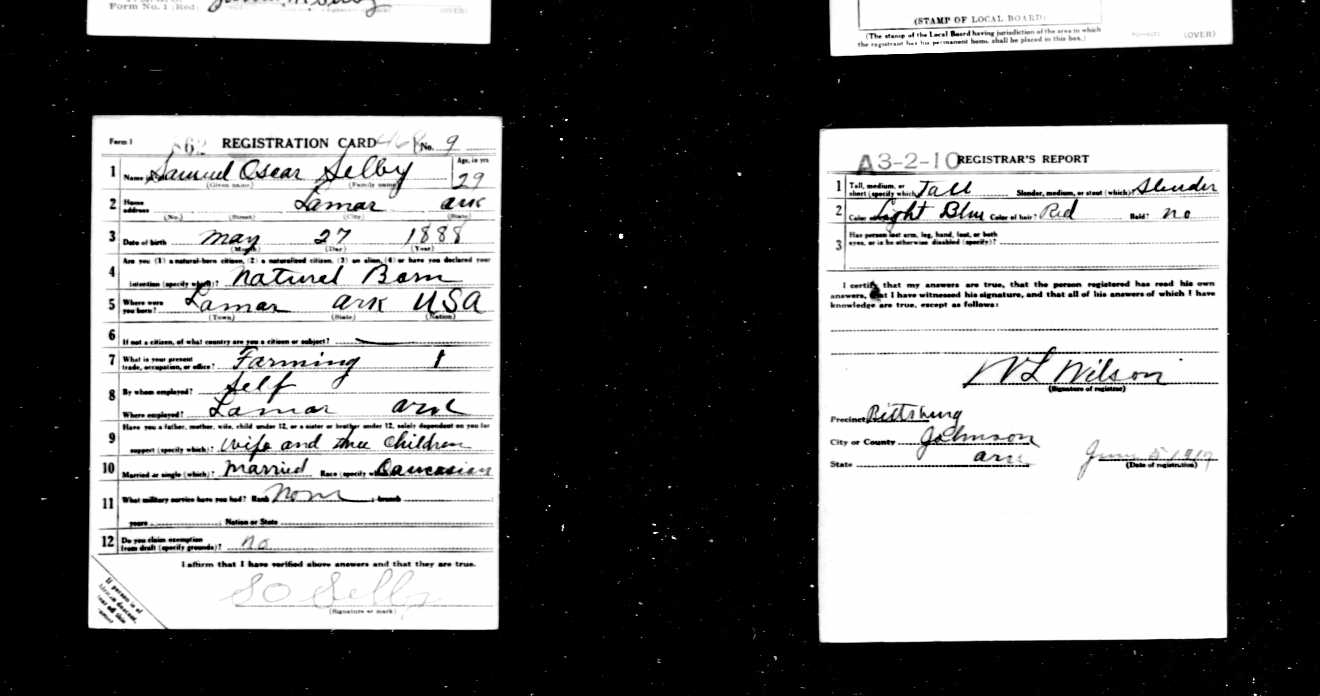 Form No. 1 (Red)
(OVER)
(STAMP OF LOCAL BOARD)
(The stamp of the Local Board having jurisdiction of the area in which
the registrant has his permanent home shall be placed in this box.)
(OVER)
Form 1 REGISTRATION CARD No. 9
1 Name Samuel Oscar Selby Age, in yrs 29
(Given name) (Family name)
2 Home address Lamar ark
(No.) (Street) (City) (State)
3 Date of birth May 27 1888
(Month) (Day) (Year)
4 Are you (1) a natural-born citizen, (2) a naturalized citizen, (3) an alien, (4) or have you declared your
intention (specify which)? Natural Born
5 Where were you born? Lamar ark USA
(Town) (State) (Nation)
6 If not a citizen, of what country are you a citizen or subject?
7 What is your present trade, occupation, or office? Farming 1
8 By whom employed? Self
Where employed? Lamar ark
9 Have you a father, mother, wife, child under 12, or a sister or brother under 12, solely dependent on you for
support (specify which)? Wife and three Children
10 Married or single (which)? Married Race (specify which)? Caucasian
11 What military service have you had? Rank None ; branch
years ; Nation or State
12 Do you claim exemption from draft (specify grounds)? no
I affirm that I have verified above answers and that they are true.
S O Selby
(Signature or mark)
If person is of
A3-2-10 REGISTRAR'S REPORT
1 Tall, medium, or short (specify which)? Tall Slender, medium, or stout (which)? Slender
2 Color of Light Blue Color of hair? Red Bald? no
3 Has person lost arm, leg, hand, foot, or both
eyes, or is he otherwise disabled (specify)?
I certify that my answers are true, that the person registered has read his own
answers, that I have witnessed his signature, and that all of his answers of which I have
knowledge are true, except as follows:
W L Wilson
(Signature of registrar)
Precinct Pittsburg
City or County Johnson
State ark June 5 1917
(Date of registration)